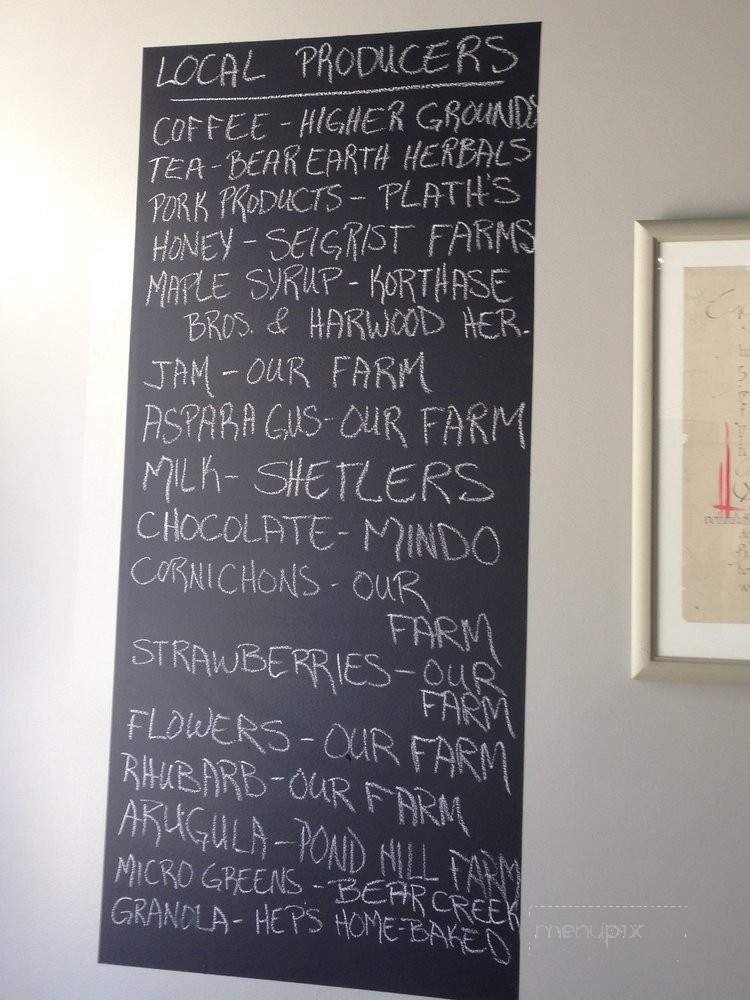 LOCAL PRODUCERS
COFFEE - HIGHER GROUNDS
TEA - BEAR EARTH HERBALS
PORK PRODUCTS - PLATH'S
HONEY - SEIGRIST FARMS
MAPLE SYRUP - KORTHASE
BROS. & HARWOOD HER.
JAM - OUR FARM
ASPARAGUS - OUR FARM
MILK - SHETLERS
CHOCOLATE - MINDO
CORNICHONS - OUR
FARM
STRAWBERRIES - OUR
FARM
FLOWERS - OUR FARM
RHUBARB - OUR FARM
ARUGULA - POND HILL FARM
MICRO GREENS - BEAR CREEK
GRANOLA - HEPS HOME-BAKED
menupix